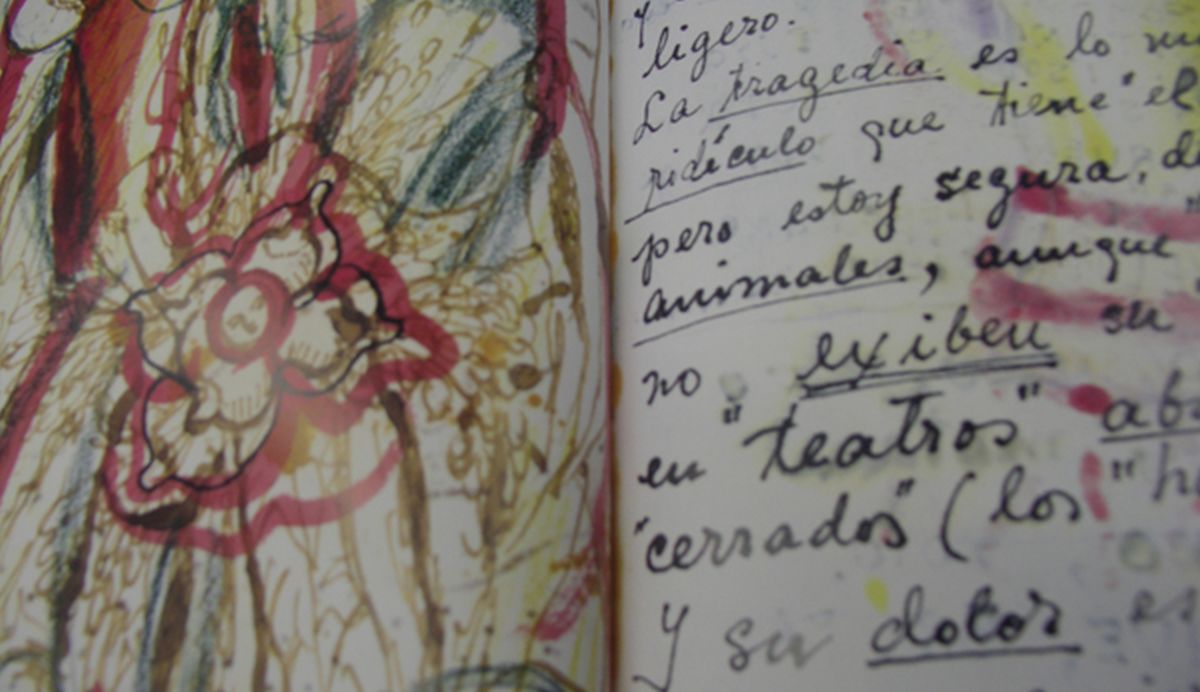 y
ligero.
La tragedia es lo
ridículo que tiene "el
pero estoy segura,
animales, aunque
no exiben su
en "teatros" ab
"cerrados" (los "h
y su dolor es